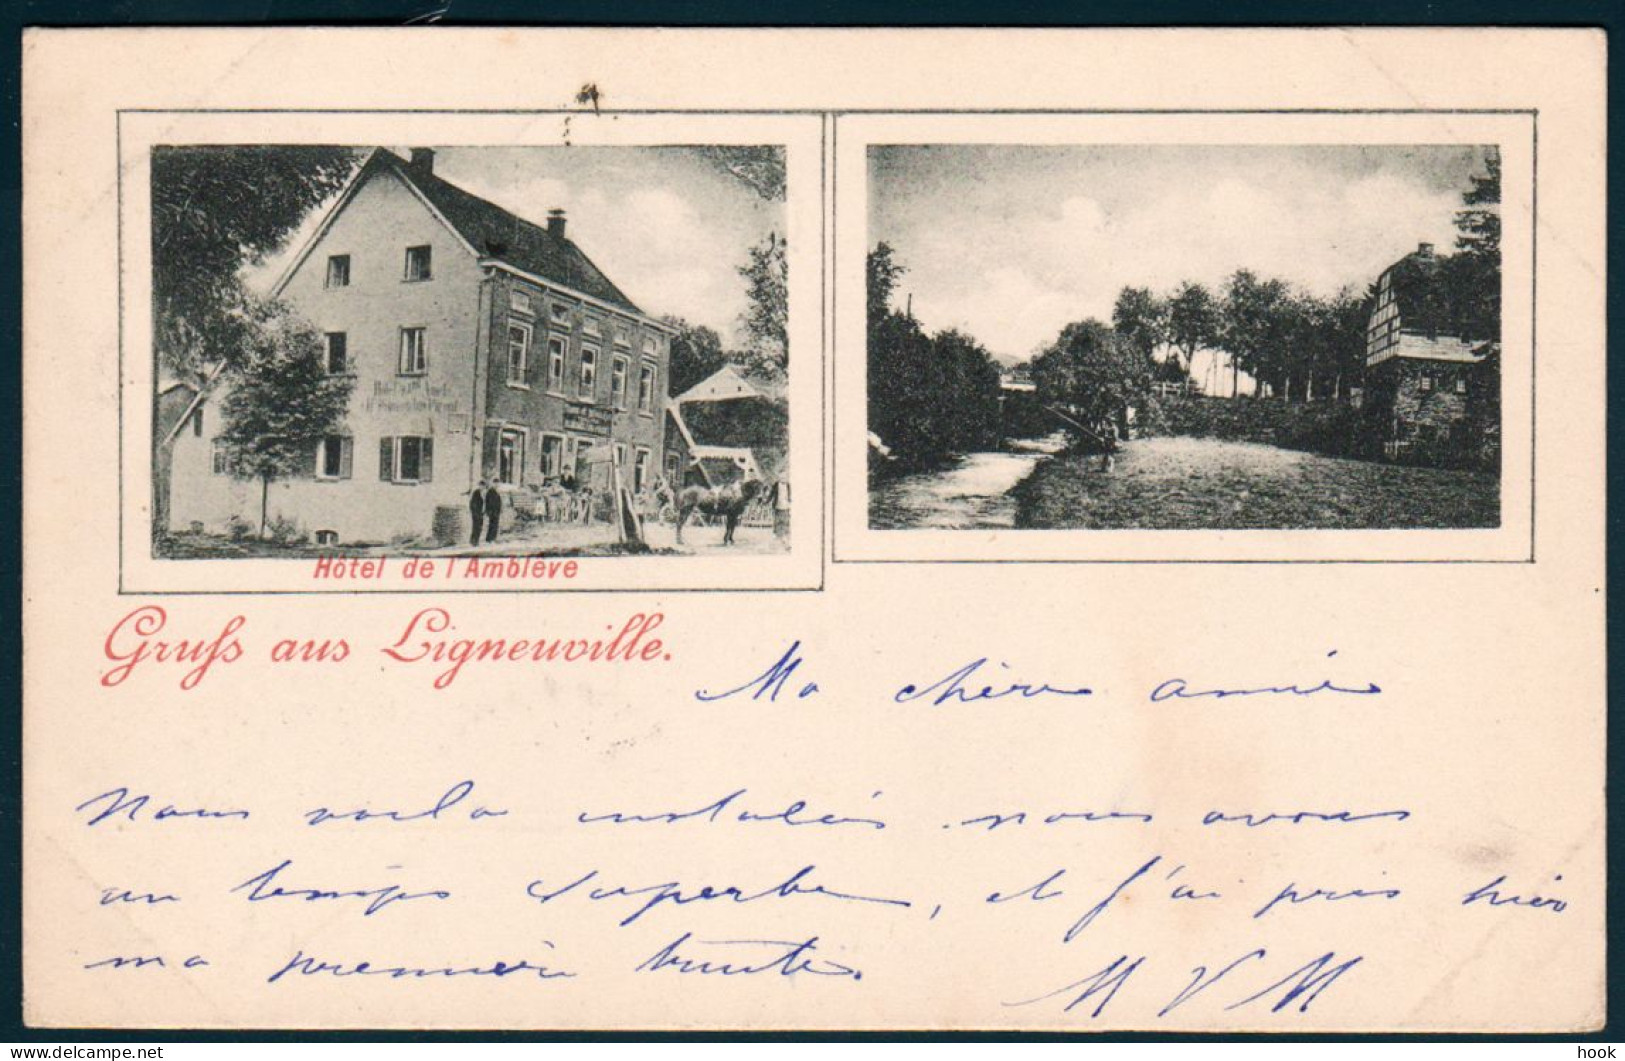 Hôtel de l'Amblève
Gruſs aus Ligneuville.
Ma chère amie
Nous voila installés nous avons
un temps superbe, et j'ai pris hier
ma première truite.
M V M
delcampe.net
hook